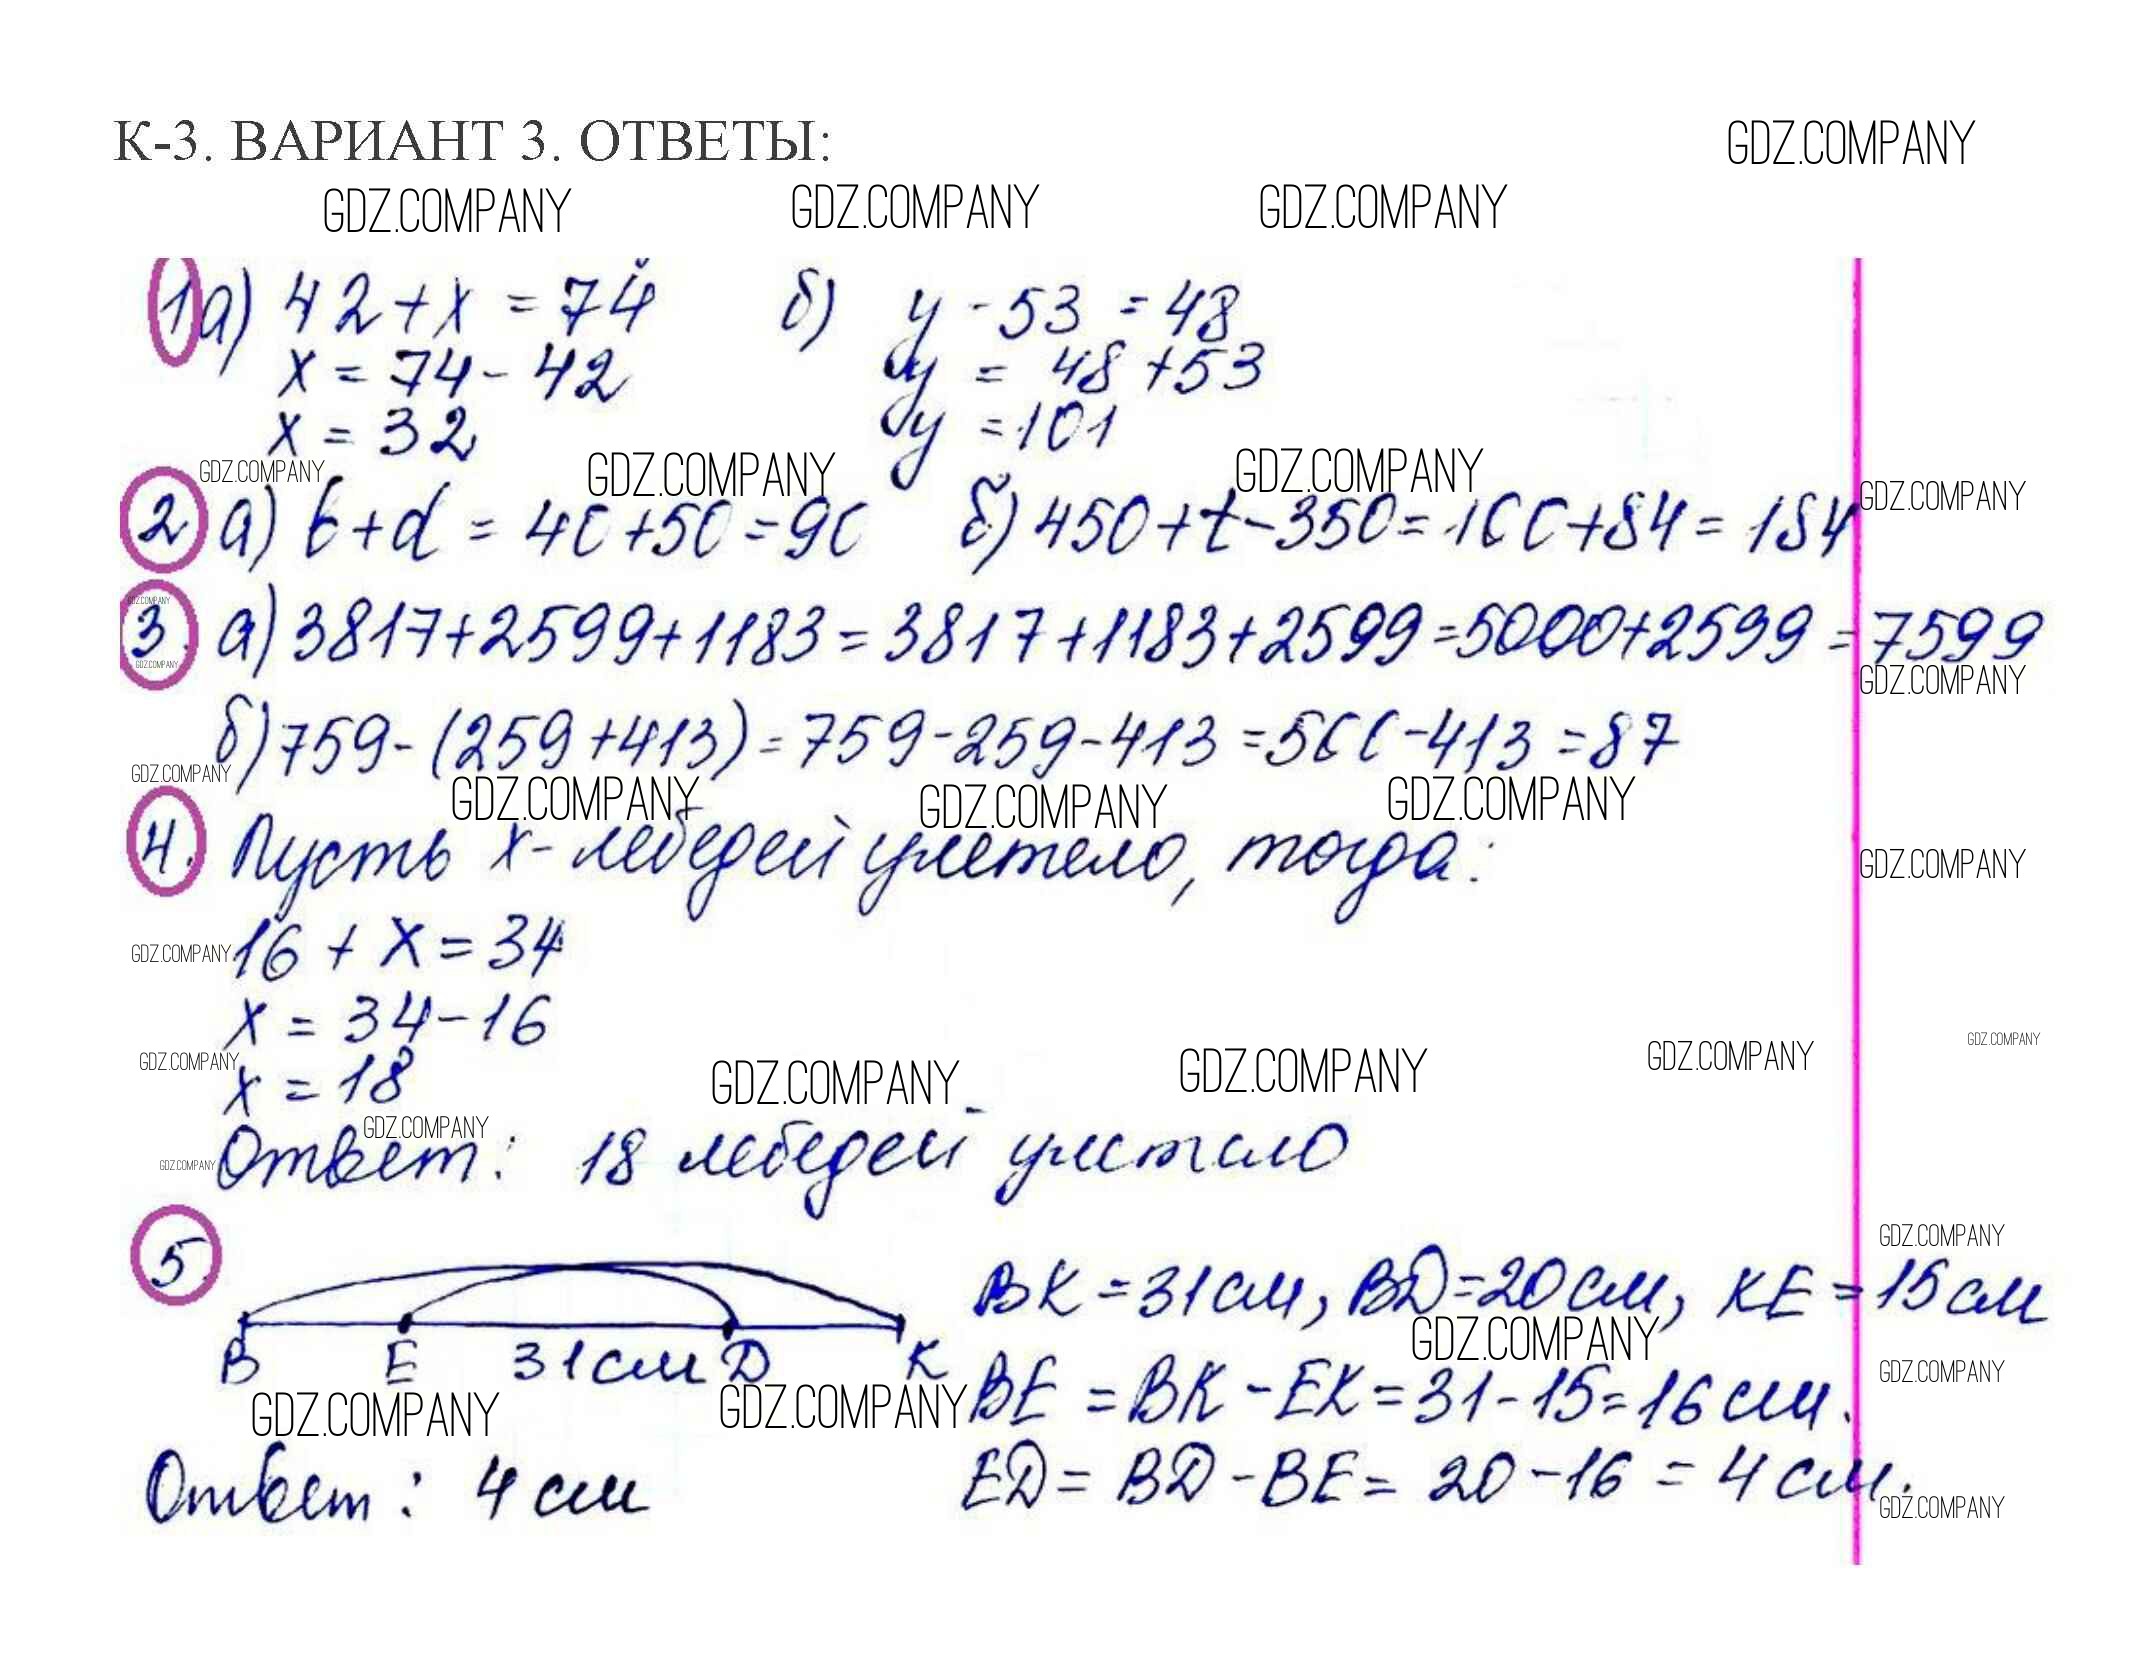 К-3. ВАРИАНТ 3. ОТВЕТЫ:
GDZ.COMPANY
GDZ.COMPANY GDZ.COMPANY GDZ.COMPANY
1 а) 42 + х = 74 б) у - 53 = 48
х = 74 - 42 у = 48 + 53
х = 32 у = 101
GDZ.COMPANY GDZ.COMPANY GDZ.COMPANY GDZ.COMPANY
2 а) b + d = 40 + 50 = 90 б) 450 + t - 350 = 100 + 84 = 184
GDZ.COMPANY
3. а) 3817 + 2599 + 1183 = 3817 + 1183 + 2599 = 5000 + 2599 = 7599
GDZ.COMPANY GDZ.COMPANY
б) 759 - (259 + 413) = 759 - 259 - 413 = 500 - 413 = 87
GDZ.COMPANY GDZ.COMPANY GDZ.COMPANY GDZ.COMPANY
4. Пусть х - лебедей улетело, тогда:
GDZ.COMPANY
16 + х = 34
GDZ.COMPANY
х = 34 - 16
GDZ.COMPANY GDZ.COMPANY GDZ.COMPANY GDZ.COMPANY GDZ.COMPANY
х = 18
GDZ.COMPANY
Ответ: 18 лебедей улетело
GDZ.COMPANY
5. GDZ.COMPANY
BK = 31 см, BD = 20 см, KE = 15 см
GDZ.COMPANY
B E 31 см D K
GDZ.COMPANY
BE = BK - EK = 31 - 15 = 16 см.
GDZ.COMPANY GDZ.COMPANY
Ответ: 4 см ED = BD - BE = 20 - 16 = 4 см.
GDZ.COMPANY